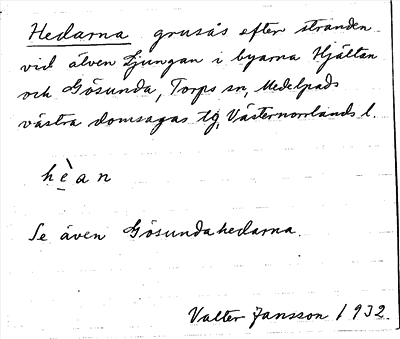 Hedarna grusås efter stranden
vid älven Ljungan i byarna Hjältan
och Gösunda, Torps sn, Medelpads
västra domsagas tg, Västernorrlands l.
hèa n
Se även Gösundahedarna.
Valter Jansson 1932.